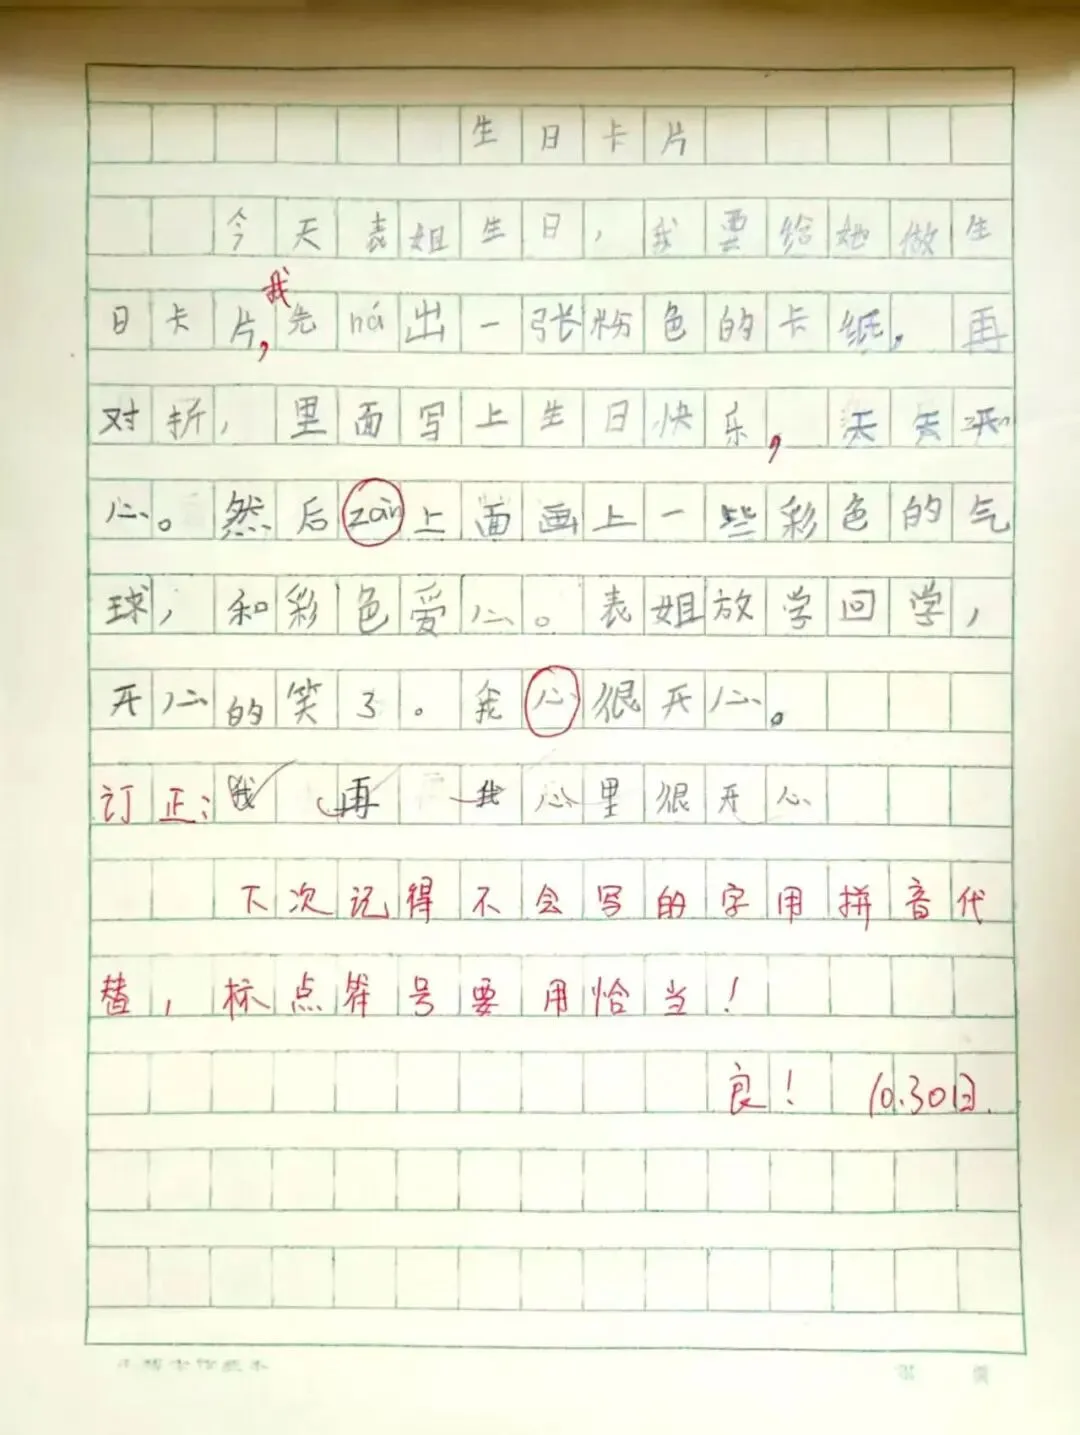 生日卡片
今天表姐生日，我要给她做生
我
日卡片，先ná出一张粉色的卡纸，再
对折，里面写上生日快乐，天天开
心。然后zài上面画上一些彩色的气
球，和彩色爱心。表姐放学回学，
开心的笑了。我心很开心。
订正：我 再 我心里很开心
下次记得不会写的字用拼音代
替，标点符号要用恰当！
良！ 10.30日.